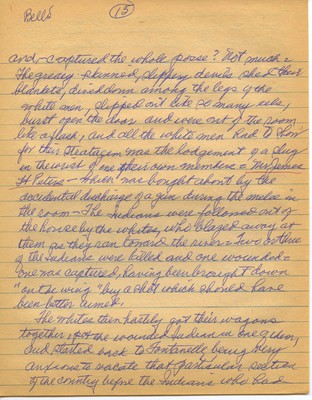 Bells
15
and captured the whole posse? Not much -
The greasy skinned, slippery devils shed their
blankets, dived down among the legs of the
white men, slipped out like so many eels,
burst open the door and were out of the room
like a flash, and all the white men had to show
for their Stratagem was the lodgement of a slug
in the wrist of one of their own members - Mr. James
H Peters - which was bought about by the
accidental discharge of a gun during the melee in
the room - The Indians were followed out of
the house by the whites, who blazed away at
them as they ran toward the river - two or three
of the Indians were killed and one wounded -
one was captured, having been brought down
"on the wing" by a shot which should have
been better aimed.
The whites then hastily got their wagons
together, put the wounded Indian in one of them,
and started back to Fontanelle being very
anxious to vacate that particular section
of the country before the Indians who had